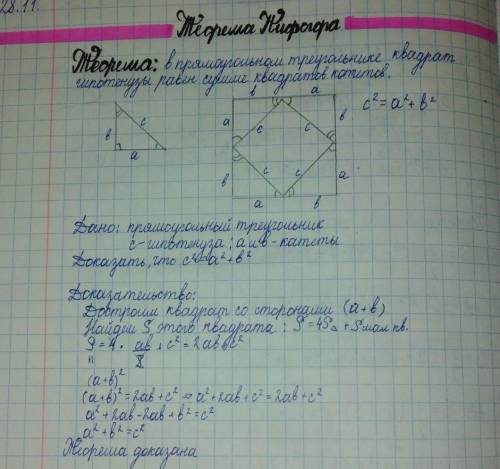 28.11.
Теорема Пифагора
Теорема: в прямоугольном треугольнике квадрат
гипотенузы равен сумме квадратов катетов.
c² = a² + b²
в а
в c a
a c c в
в c c a
a в
Дано: прямоугольный треугольник
c - гипотенуза; a и в - катеты
Доказать, что c² = a² + в²
Доказательство:
Достроим квадрат со сторонами (a+в)
Найдем S этого квадрата: S = 4S△ + S мал кв.
S = 4 · ab/2 + c² = 2ab + c²
"
(a+b)²
(a+b)² = 2ab + c² ⇒ a² + 2ab + c² = 2ab + c²
a² + 2ab - 2ab + b² = c²
a² + b² = c²
Теорема доказана